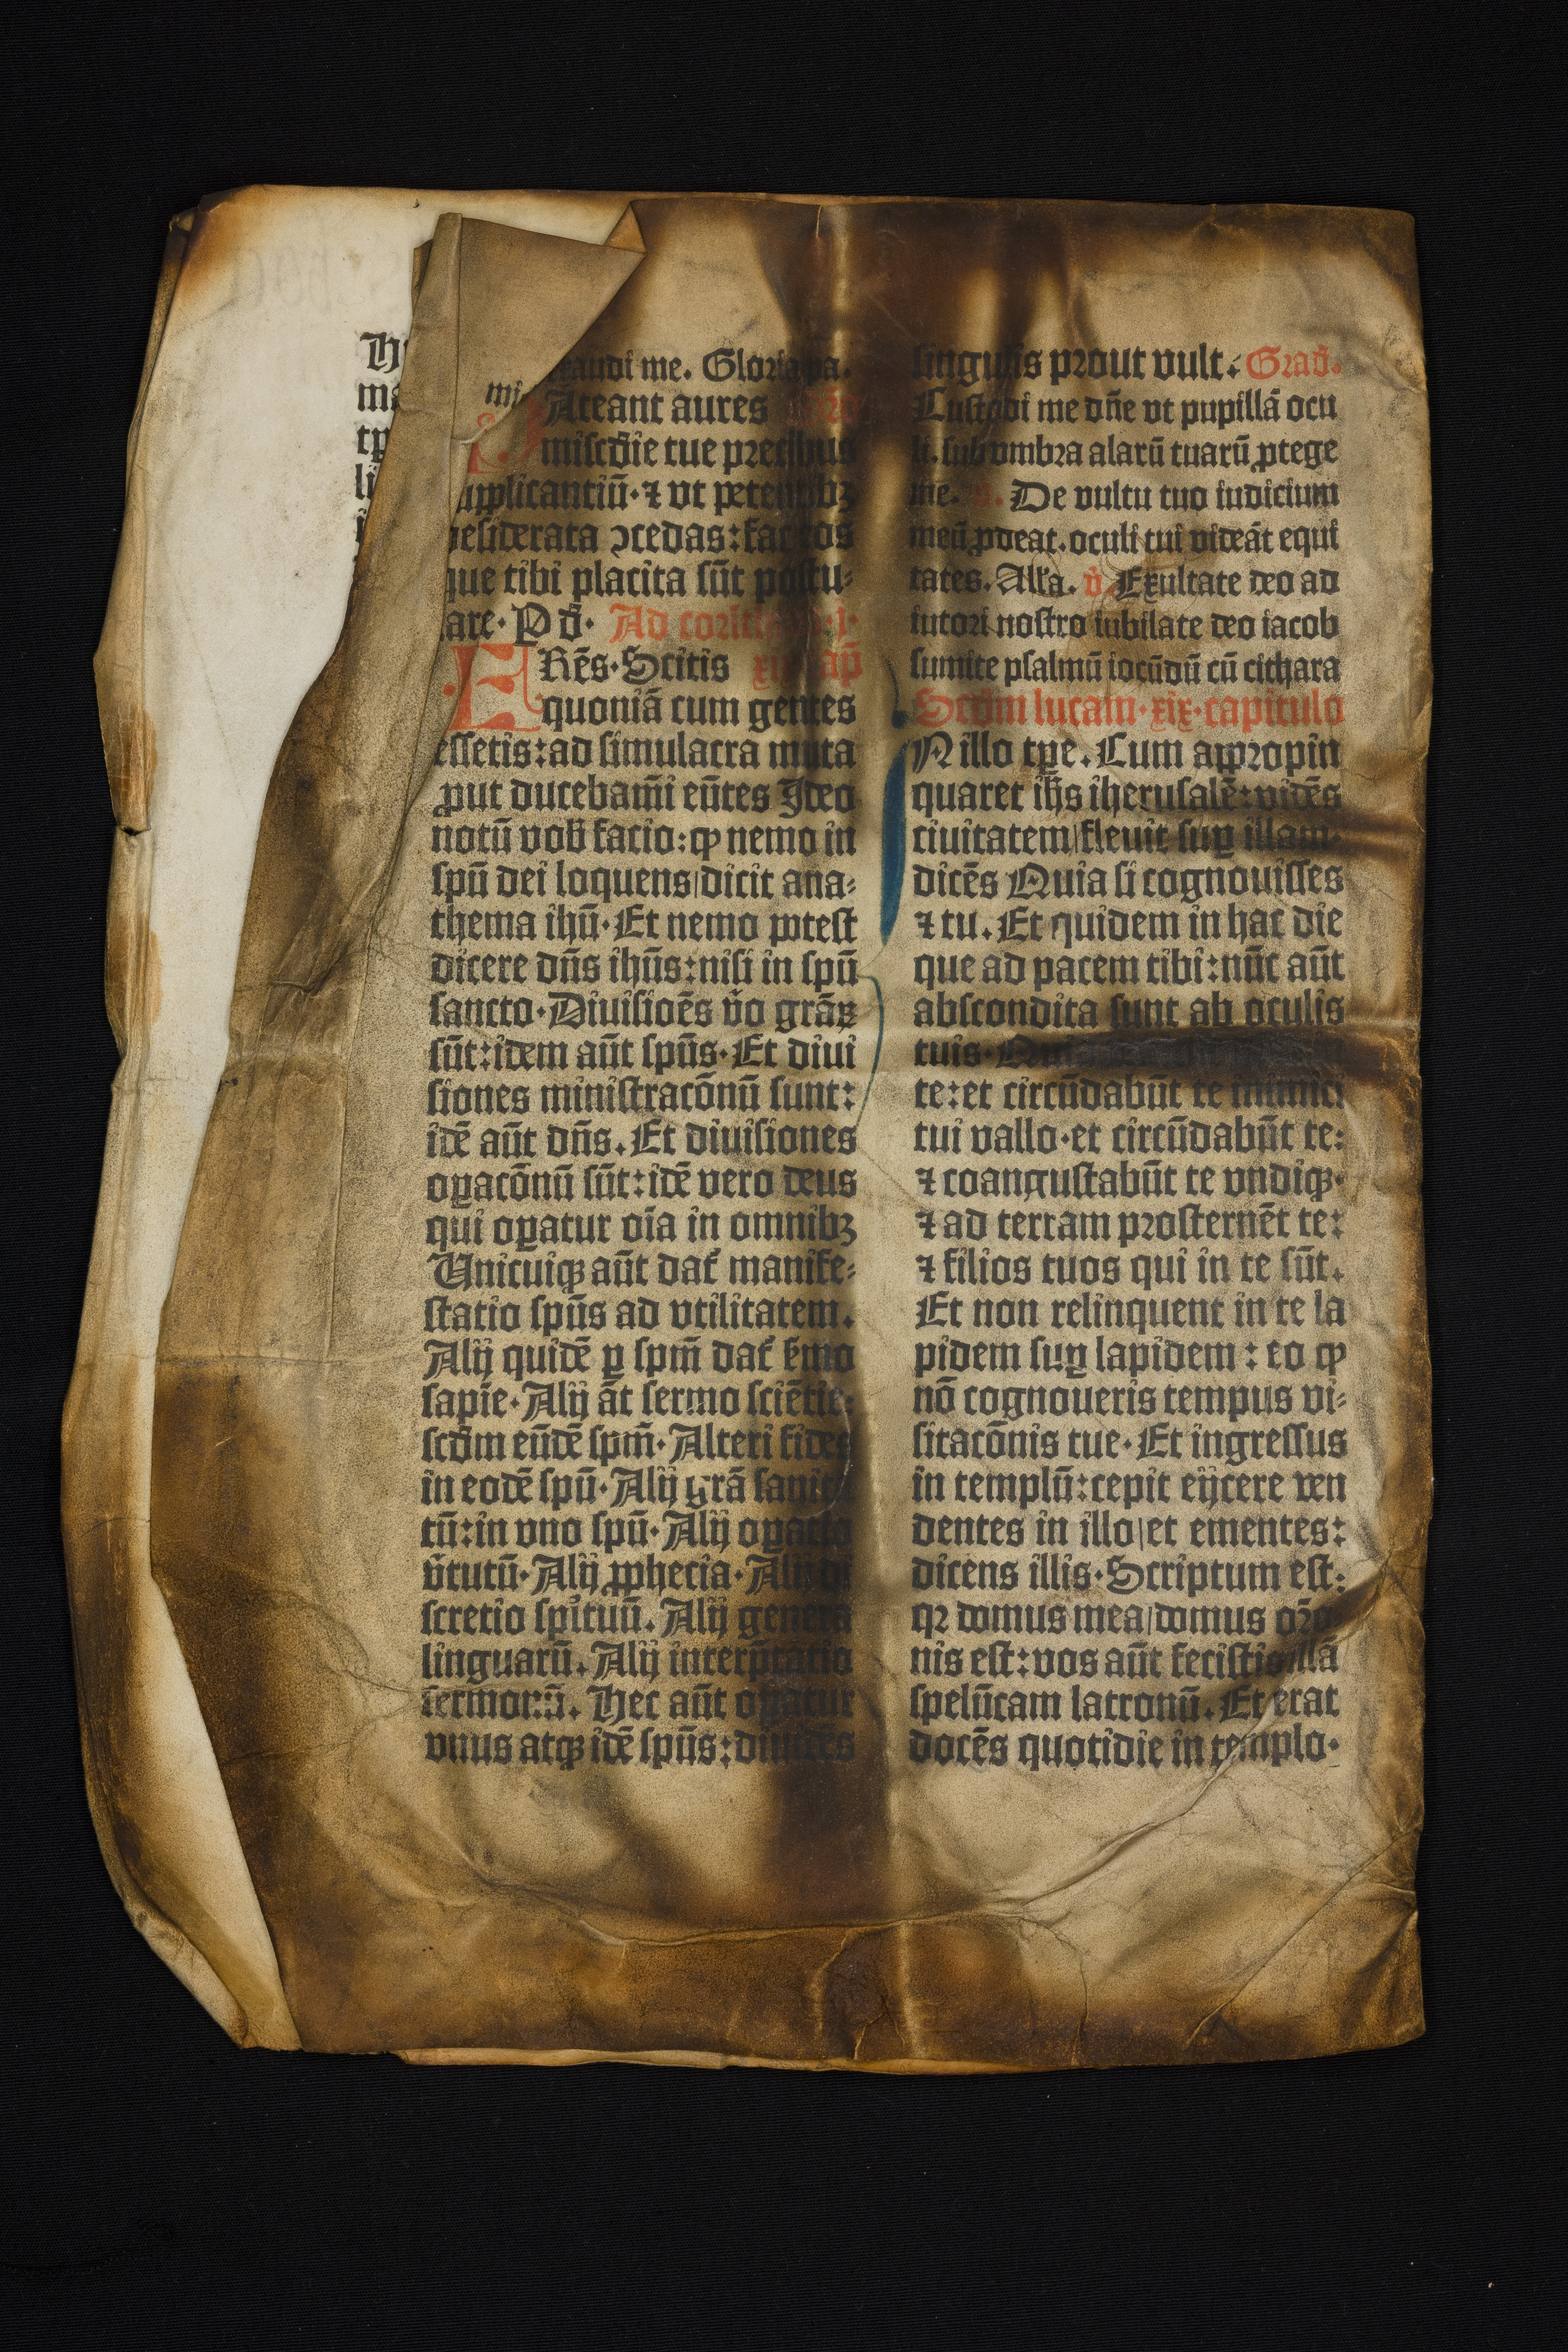 me. Gloria pa.
Ateant aures
miſcd̄ie tue precibus
upplicantiū·⁊ vt petentibꝫ
deſiderata ɔcedas:fac eos
que tibi placita ſūt poſtu⸗
lare·P d̄· Ad corinth
Rēs·Scitis
quoniā cum gentes
eſſetis:ad ſimulacra muta
ꝓut ducebam̄i eūtes Ideo
notū vob̄ facio:ꝙ nemo in
ſpū dei loquens|dicit ana⸗
thema ihū·Et nemo poteſt
dicere dn̄s ihūs:niſi in ſpū
ſancto·Diuiſioēs v̄o grāꝝ
ſūt:idem aūt ſpūs·Et diui
ſiones miniſtracōnū ſunt:
idē aūt dn̄s. Et diuiſiones
oꝑacōnū ſūt:idē vero deus
qui oꝑatur oīa in omnibꝫ
Unicuiqꝫ aūt dat᷑ manife⸗
ſtatio ſpūs ad vtilitatem.
Alij quidē ꝑ ſpm̄ dat᷑ ẜmo
ſapīe·Alij āt ſermo ſciētie:
ſcd̄m eūdē ſpm̄·Alteri fides
in eodē ſpū·Alij grā ſanita
tū:in vno ſpū·Alij oꝑatio
v̄tutū·Alij ꝓphecia·Alij di
ſcretio ſpi᷑tuū. Alij genera
linguarū. Alij interp̄tatio
ſermonū. Hec aūt oꝑatur
vnus atqꝫ idē ſpūs:diuidēs
ſingulis prout vult. Grad̄.
Cuſtodi me dn̄e vt pupillā ocu
li. ſub vmbra alarū tuarū ꝓtege
me. De vultu tuo iudicium
meū ꝓdeat. oculi tui videāt equi
tates. All'a. v̄. Exultate deo ad
iutori noſtro iubilate deo iacob
ſumite pſalmū iocūdū cū cithara
Scd̄m lucam·xix·capitulo
N illo tꝑe. Cum appropin
quaret ih̄s iheruſalē:vidēs
ciuitatem|fleuit ſuꝑ illam·
dicēs Quia ſi cognouiſſes
⁊ tu. Et quidem in hac die
que ad pacem tibi:nūc aūt
abſcondita ſunt ab oculis
tuis·
te:et circūdabūt te inimici
tui vallo·et circūdabūt te:
⁊ coanguſtabūt te vndiqꝫ·
⁊ ad terram proſternēt te:
⁊ filios tuos qui in te ſūt.
Et non relinquent in te la
pidem ſuꝑ lapidem : eo ꝙ
nō cognoueris tempus vi⸗
ſitacōnis tue·Et ingreſſus
in templū:cepit eijcere ven
dentes in illo|et ementes:
dicens illis·Scriptum eſt:
qꝛ domus mea|domus orō
nis eſt:vos aūt feciſtis illā
ſpelūcam latronū. Et erat
docēs quotidie in templo·